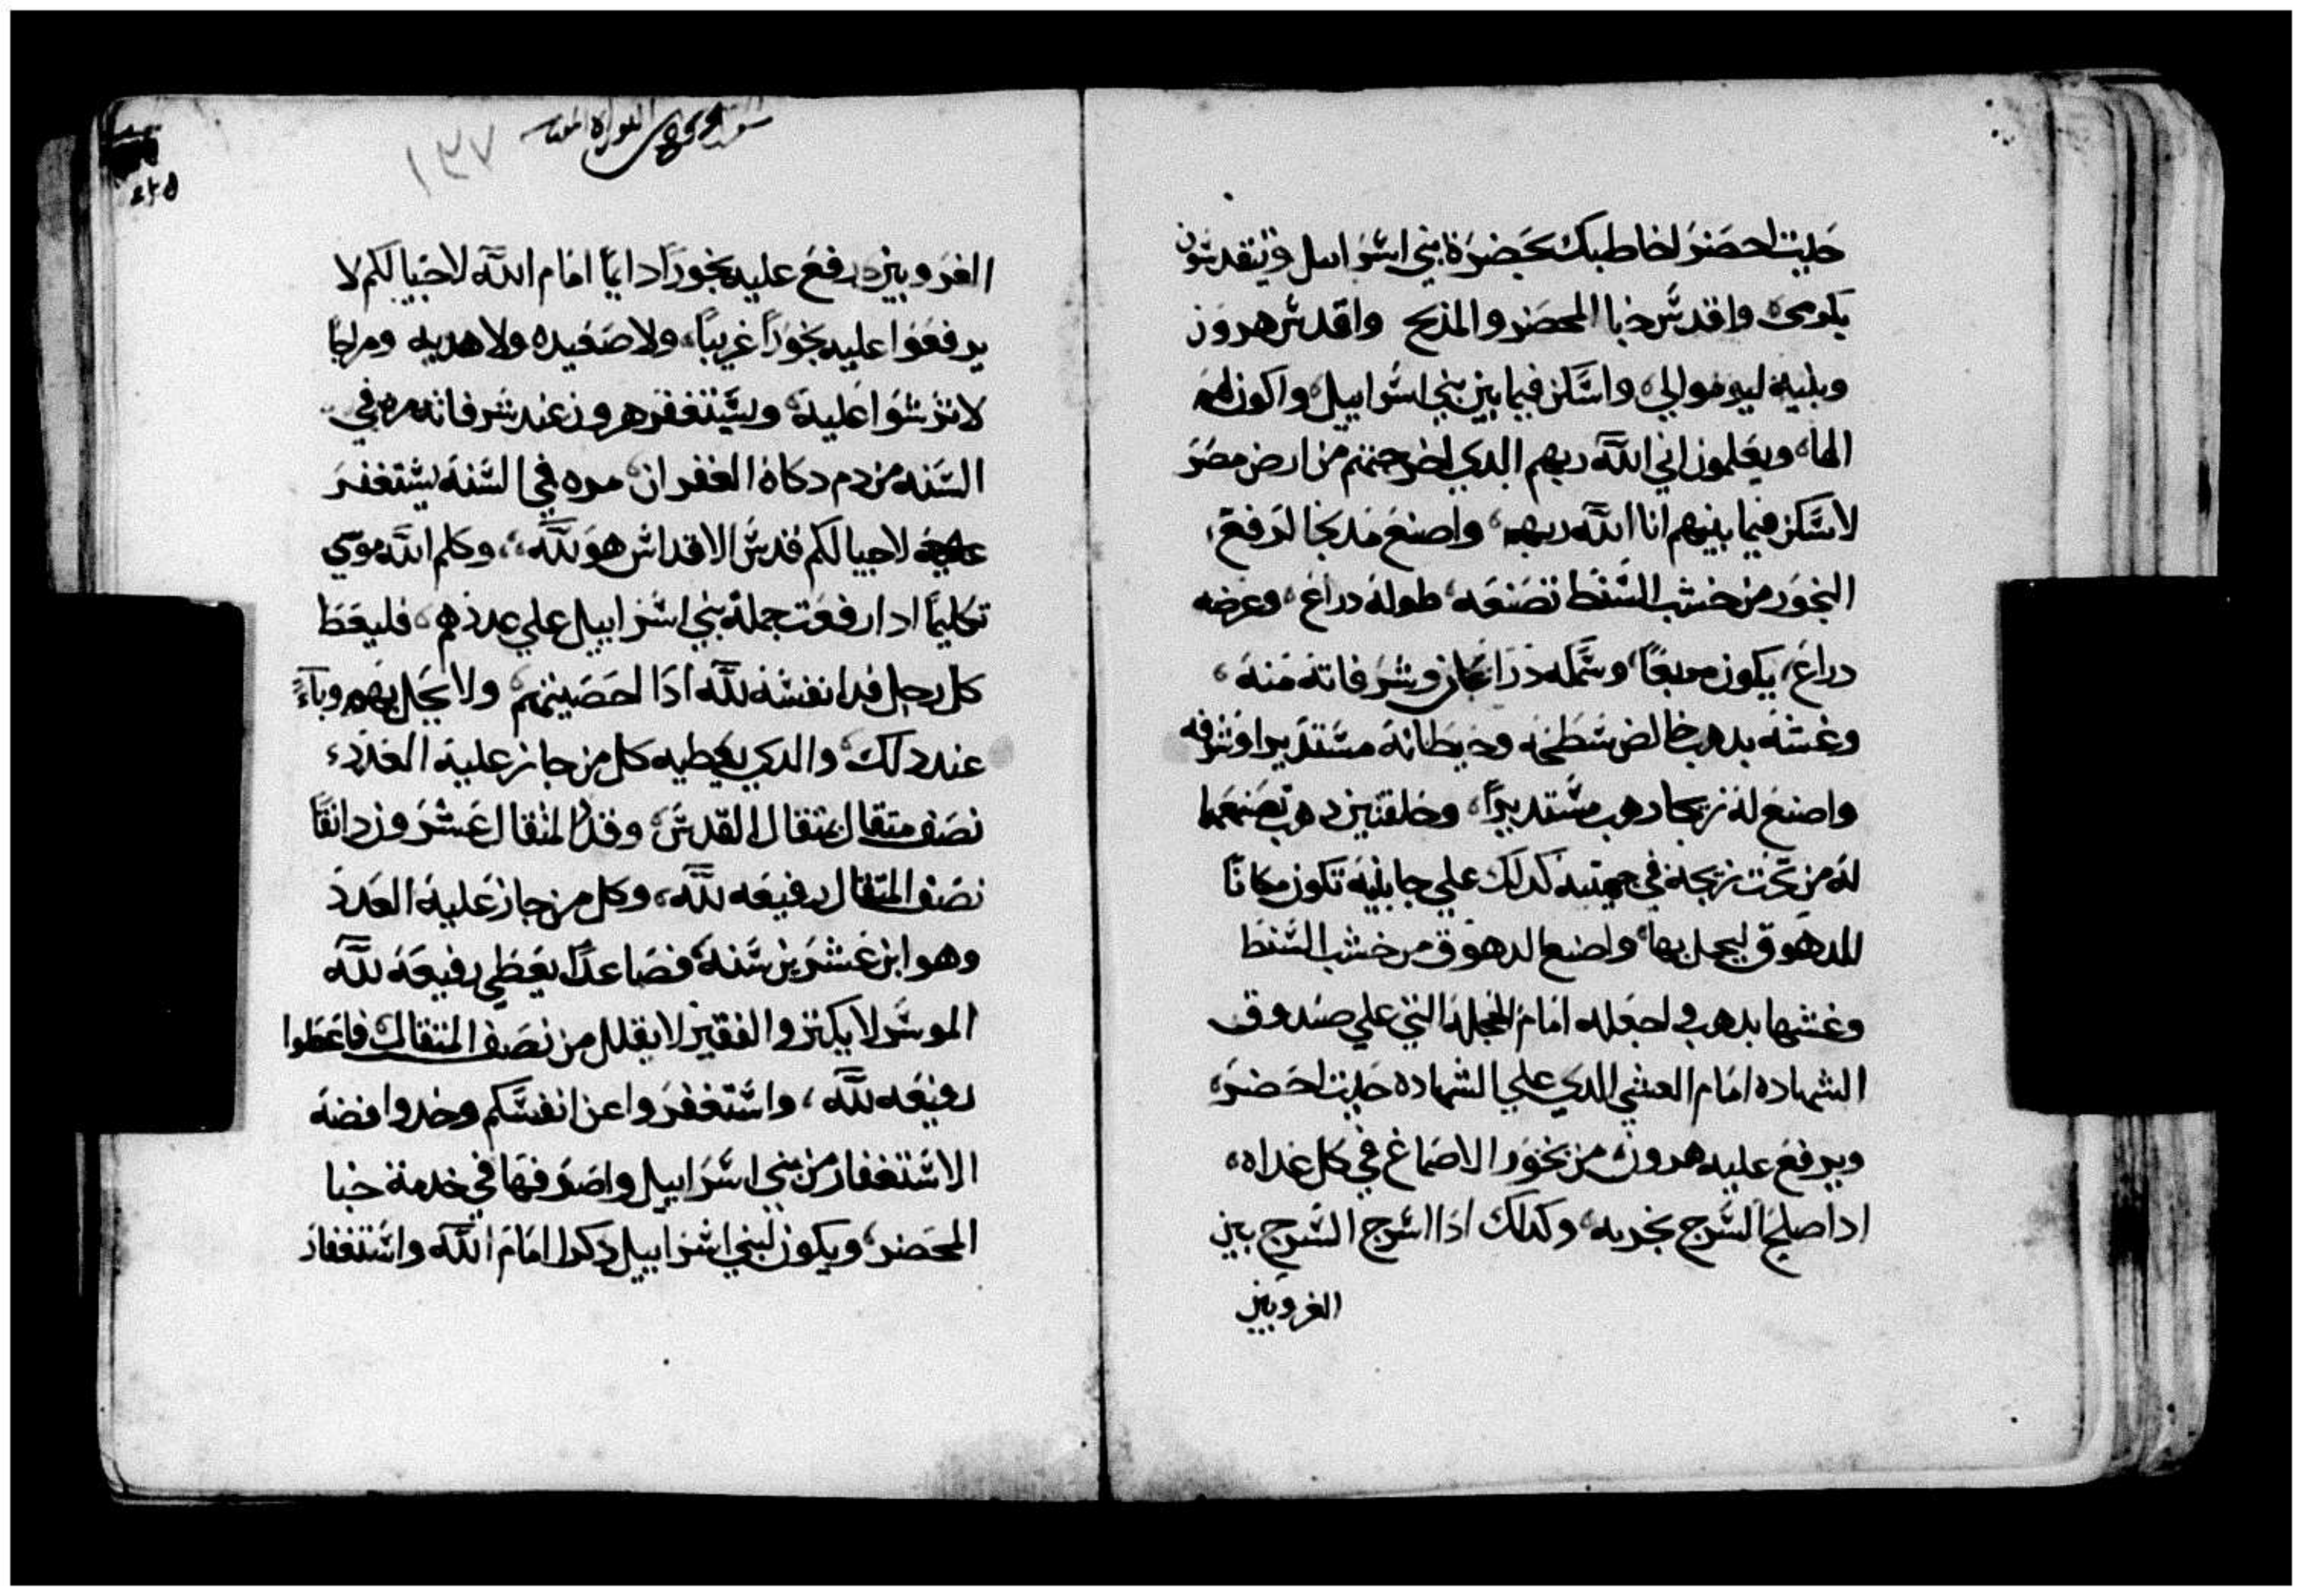 حيت احضر لخاطبك بحضرة بني اسرائيل ويتقدسون
بكرمي واقدس خبا المحضر والمذبح واقدس هرون
وبنية ليوموا لي واسكن فيما بين بني اسراييل واكون لهم
الها ويعلمون اني الله ربهم الدي اخرجتهم من ارض مصر
لاسكن فيما بينهم انا الله ربهم واصنع مدبخا لترفع
البخور من خشب السنط تصنعه طوله دراع وعرضه
دراع يكون مربعا وسمكه دراعان وشرفاته منه
وغشه بدهب خالص سطحه وحيطانه مستديرا وشرفه
واصنع له زيجا دهب مستديرا وحلقتين دهب تصنعهما
له من تحت زيجه في جهتيه كدلك علي جانبيه تكون مكانا
للدهوق ليحمل بها واصنع الدهوق من خشب السنط
وغشها بدهب واجعله امام الحجلة التي علي صندوق
الشهاده امام الغشي الدي علي الشهاده حيت احضر
ويرفع عليه هرون من بخور الاصماغ في كل غداه
ادا اصلح السرج بخر به وكدلك ادا اسرج السرج بين
الغروبين
١٣٧
٢٤٥
الغروبين يرفع عليه بخورا دايما امام الله لاجيالكم لا
يرفعوا عليه بخورا غريبا ولا صعيده ولا هديه ومزاجا
لا ترشوا عليه وليستغفر هرون عند شرفاته مره في
السنه من دم دكاة الغفران مره في السنة يستغفر
عليه لاجيالكم قدس الاقداس هو لله وكلم الله موسي
تكليما ادا رفعت جملة بني اسراييل علي عددهم فليعط
كل رجل فدا نفسه لله ادا احصيتهم ولا يحل بهم وباء
عند دلك والدي يعطيه كل من جاز عليه العدد
نصف متقال بمتقال القدس وقدر المتقال عشرون دانقا
نصف المتقال رفيعه لله وكل من جاز عليه العدد
وهو ابن عشرين سنة فصاعدا يعطي رفيعة لله
الموسر لا يكتر والفقير لا يقلل من نصف المتقال فاعطوا
رفيعه لله واستغفروا عن انفسكم وخدوا فضة
الاستغفار من بني اسراييل واصرفها في خدمة خبا
المحضر ويكون لبني اسراييل دكرا امام الله واستغفار